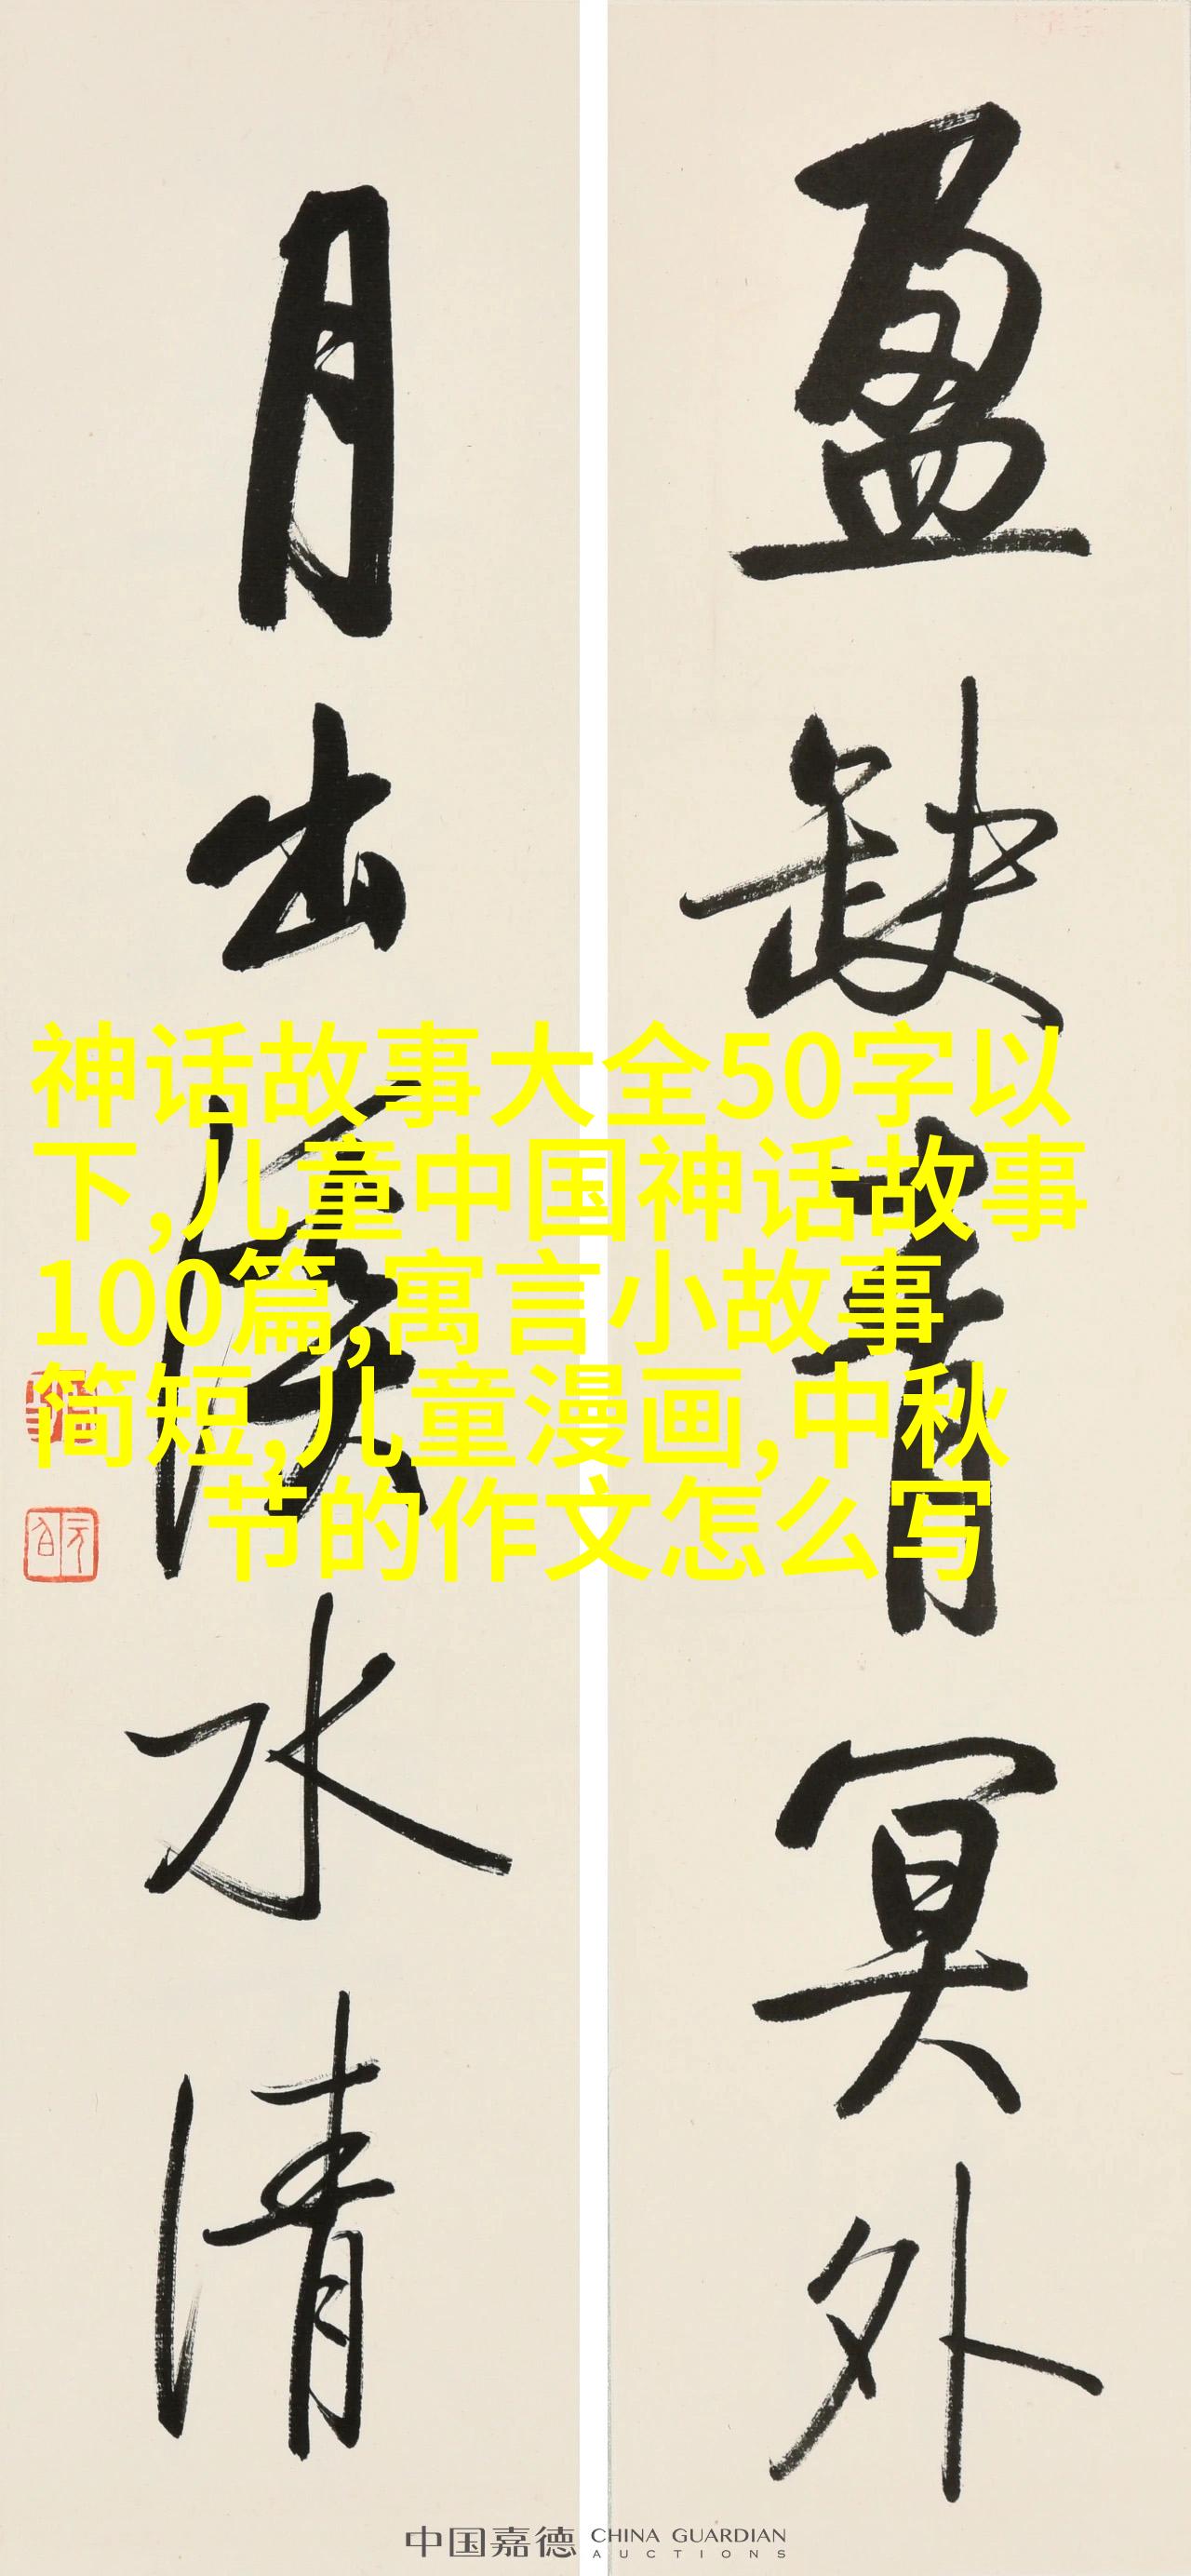 盈缺青冥外
月出溪水清
元白
神话故事大全50字以
下,儿童中国神话故事
100篇,寓言小故事
简短,儿童漫画,中秋
节的作文怎么写
中国嘉德 CHINA GUARDIAN
AUCTIONS